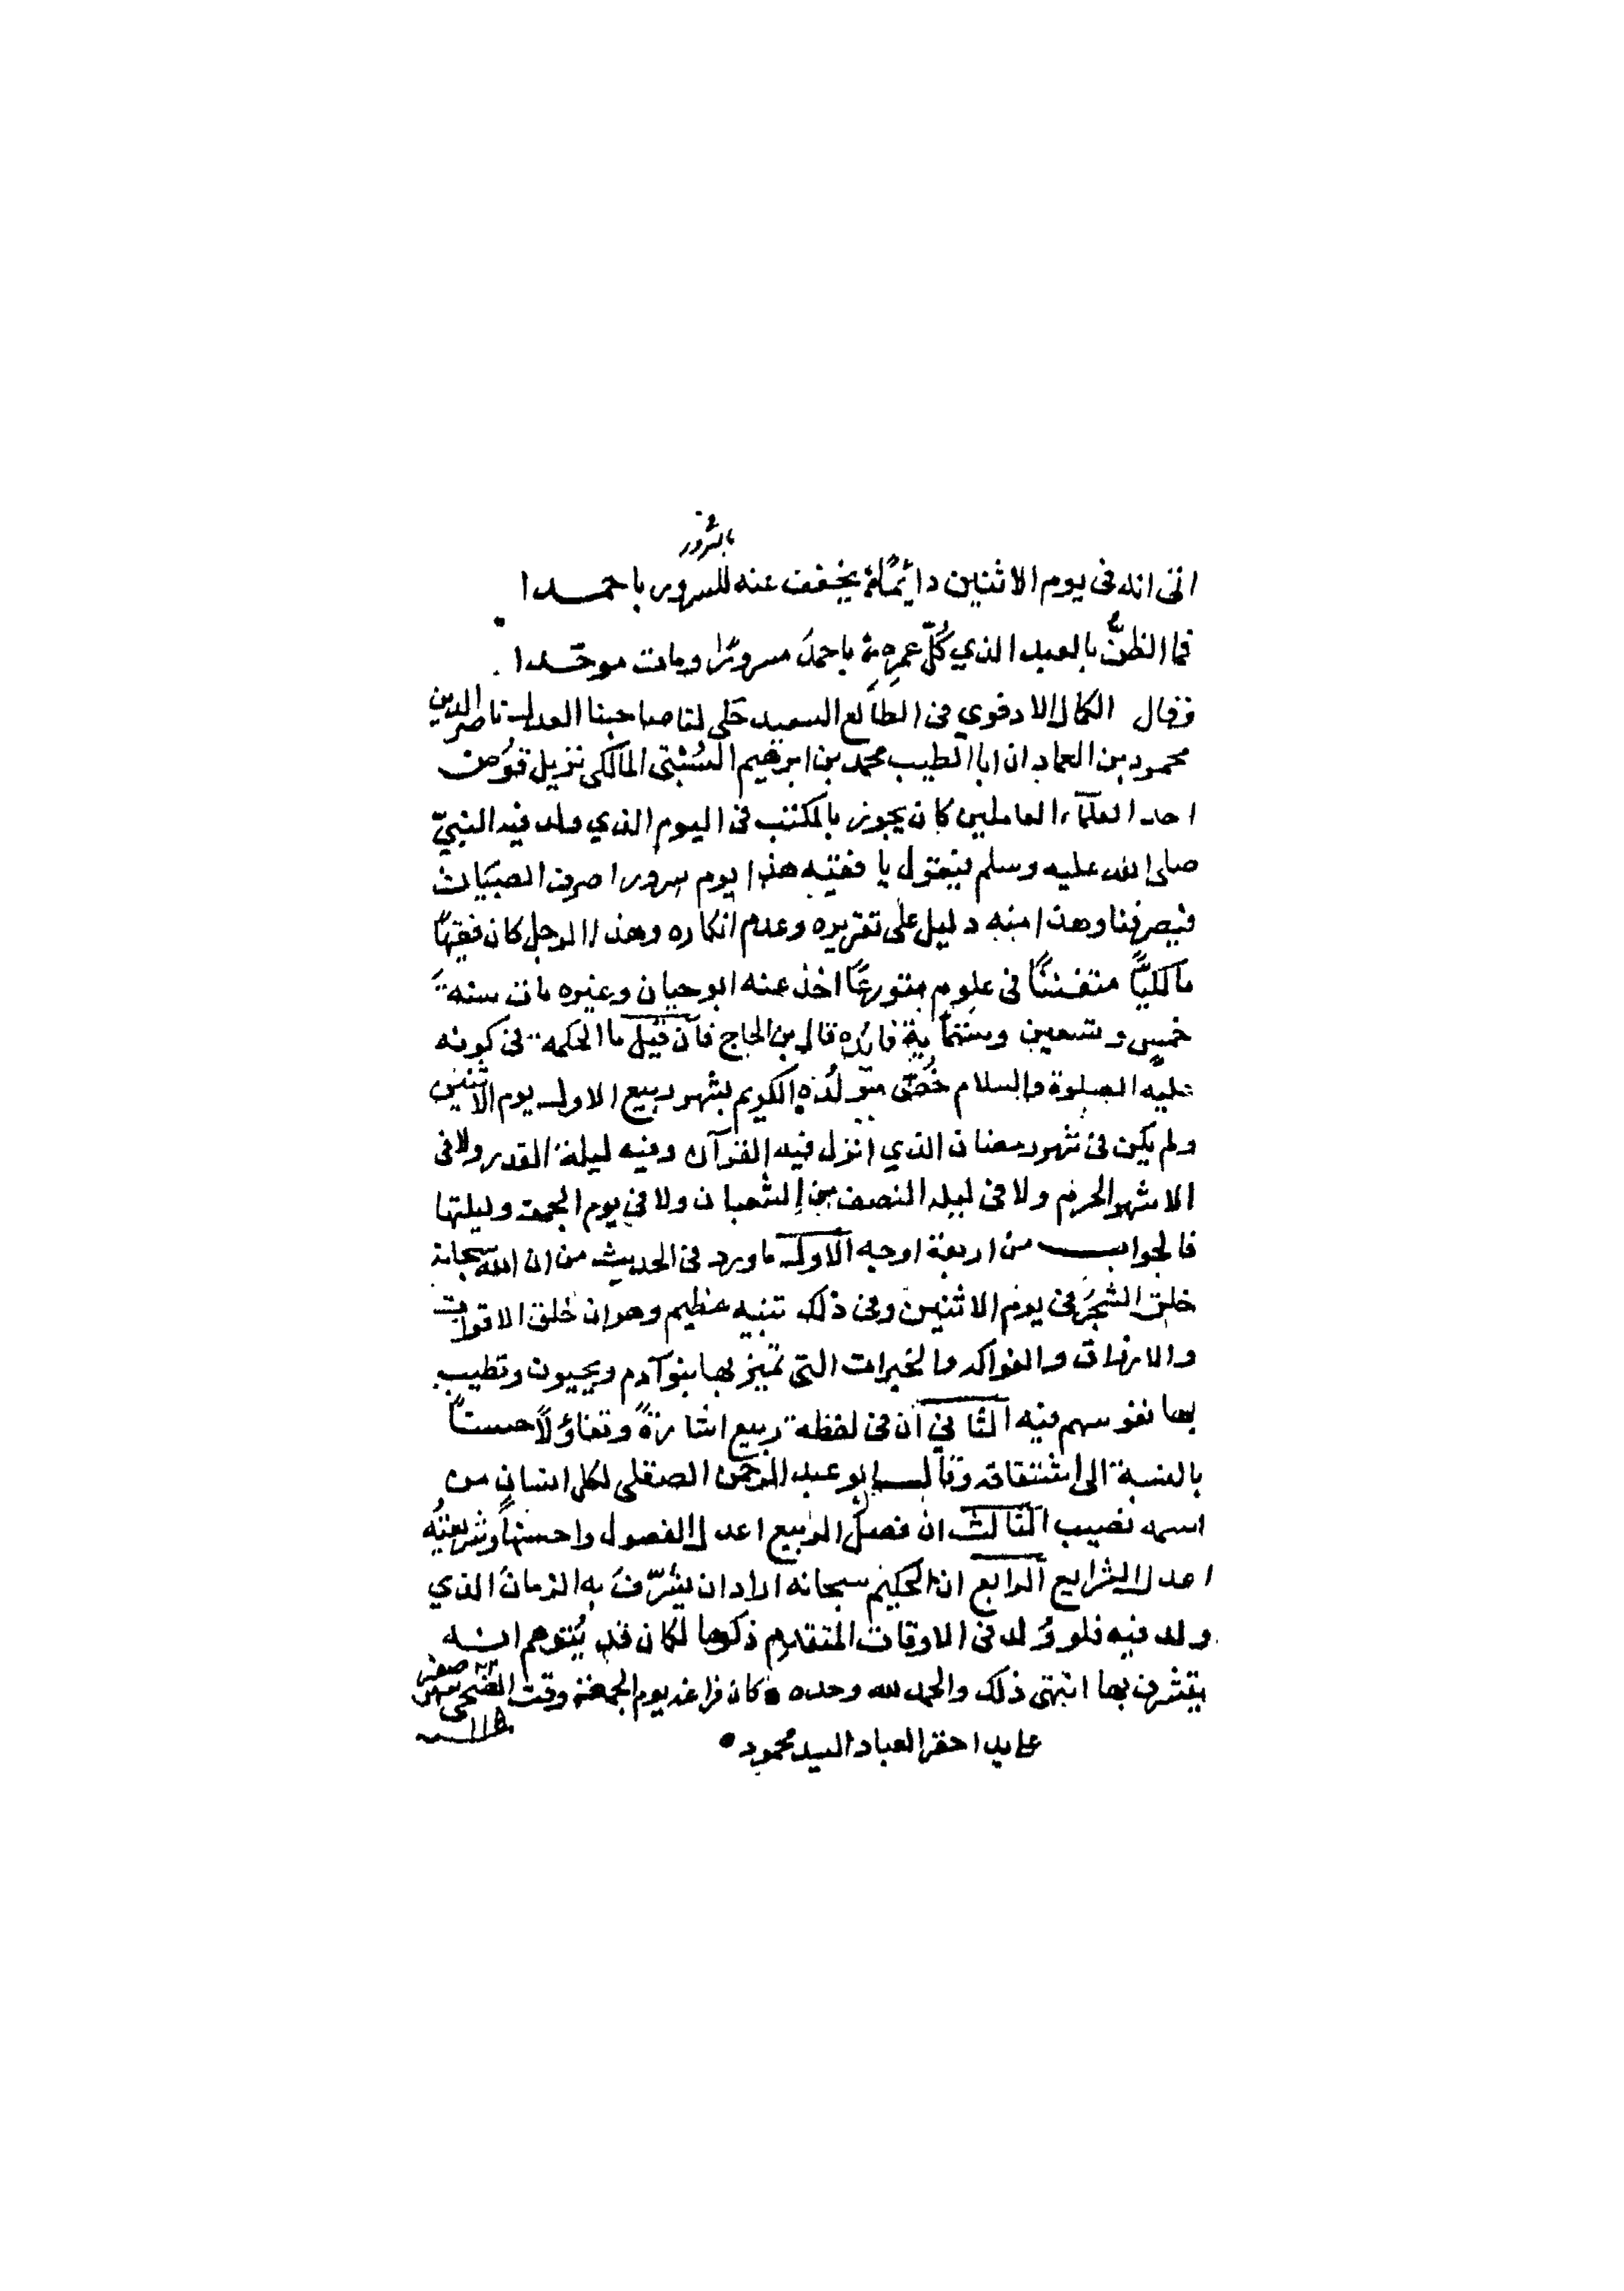 بالسرور
اتى انه فى يوم الاثنين دائمًا يخفف عنه للسرور باحمدا
فما الظنّ بالعبد الذي كلّ عمره باحمدَ مسرورًا ومات موحّدا
وقال الكمال الادفوي فى الطالع السعيد حكى لنا صاحبنا العدل ناصر الدين
محمود بن العماد ان ابا الطيب محمد بن ابرهيم السَّبْتى المالكى نزيل قوص
احد العلمآء العاملين كان يجوز بالمكتب فى اليوم الذي ولد فيه النبيّ
صلى الله عليه وسلم فيقول يا فقيه هذا يوم سرور اصرف الصبيان
فيصرفنا وهذا منه دليل على تقريره وعدم انكاره وهذا الرجل كان فقيهًا
مالكيًّا متفننًا فى علوم متورعًا اخذ عنه ابو حيان وغيره مات سنة
خمس وتسعين وستمآية فائده قال بن الحاج فآن قيل ما الحكمة فى كونه
عليه الصلوة والسلام خُصّ مولدُه الكريم بشهر ربيع الاول يوم الاثنين
ولم يكن فى شهر رمضان الذي انزل فيه القرآن وفيه ليلة القدر ولا فى
الاشهر الحرم ولا فى ليلة النصف من الشعبان ولا فى يوم الجمعة وليلتها
فالجواب من اربعة اوجه الاول ما ورد فى الحديث من ان الله سبحانه
خلق الشجر فى يوم الاثنين وفى ذلك تنبيه عظيم وهو ان خلق الاقوات
والارزاق والفواكه والخيرات التى تميز بها بنو آدم ويحيون وتطيب
بها نفوسهم فيه الثاني ان فى لفظة ربيع اشارةً وتفاؤلًا حسنًا
بالنسبة الى اشتقاقه وقال ابو عبد الرحمن الصقلى لكل انسان من
اسمه نصيب الثالث ان فصل الربيع اعدل الفصول واحسنها وشريعتُه
اعدل الشرايع الرابع ان الحكيم سبحانه اراد ان يشرّف به الزمان الذي
ولد فيه فلو وُلد فى الاوقات المتقدم ذكرها لكان قد يُتوهم انه
يتشرف بها انتهى ذلك والحمد لله وحده كان فراغه يوم الجمعة وقت الضحى صفر
على يد احقر العباد السيد محمود